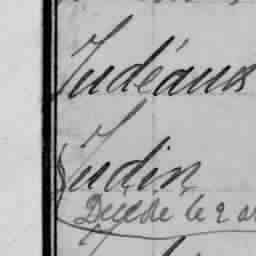 Judéaux
Judin
Décédé le 2